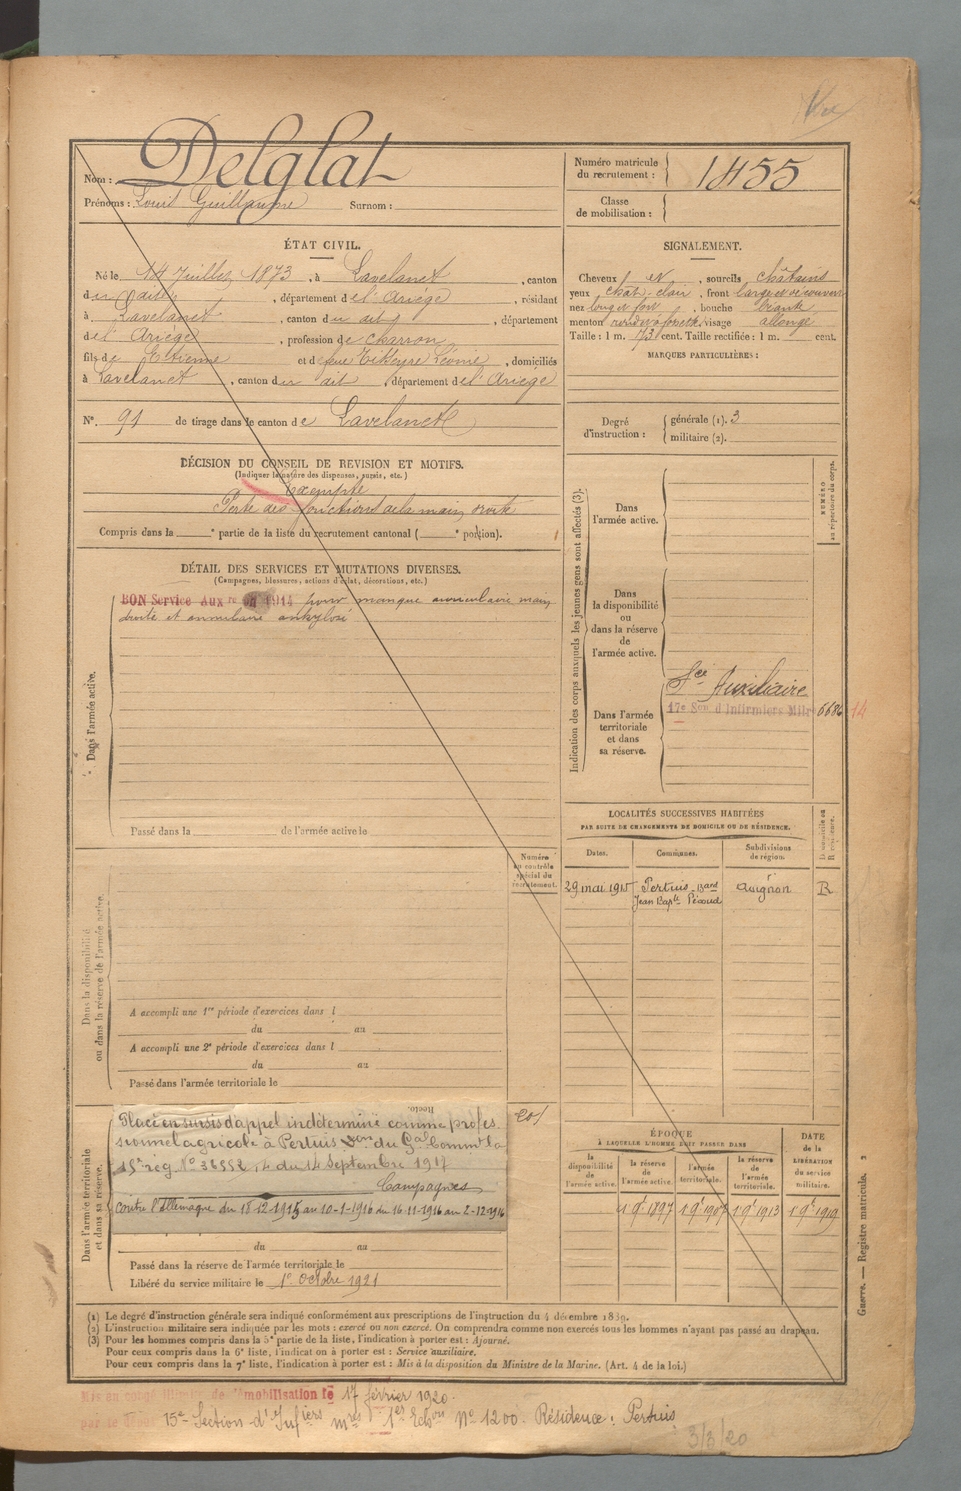 Nom : Delglat
Prénoms : Louis Guillaume Surnom :
Numéro matricule du recrutement : 1455
Classe de mobilisation :
ÉTAT CIVIL.
Né le 14 Juillet 1873, à Lavelanet, canton
du dit, département de l'Ariège, résidant
à Lavelanet, canton du dit, département
de l'Ariège, profession de charron
fils de Etienne et de feue Léonie, domiciliés
à Lavelanet, canton du dit, département de l'Ariège
N° 91 de tirage dans le canton de Lavelanet
SIGNALEMENT.
Cheveux et, sourcils châtains
yeux chât. clair, front large et découvert
nez long et fort, bouche grande
menton rond à fossette, visage allongé
Taille : 1 m. 73 cent. Taille rectifiée : 1 m. cent.
MARQUES PARTICULIÈRES :
Degré d'instruction : générale (1). 3
militaire (2).
DÉCISION DU CONSEIL DE REVISION ET MOTIFS.
(Indiquer la nature des dispenses, sursis, etc.)
Exempté
Perte des fonctions de la main droite
Compris dans la e partie de la liste du recrutement cantonal ( e portion).
DÉTAIL DES SERVICES ET MUTATIONS DIVERSES.
(Campagnes, blessures, actions d'éclat, décorations, etc.)
BON Service Aux re en 1914 pour manque auriculaire main
droite et annulaire ankylosé
Dans l'armée active.
Passé dans la de l'armée active le
Numéro au contrôle spécial du recrutement.
Dans la disponibilité
ou dans la réserve de l'armée active.
A accompli une 1re période d'exercices dans l
du au
A accompli une 2e période d'exercices dans l
du au
Passé dans l'armée territoriale le
Dans l'armée territoriale
et dans sa réserve.
Recto.
201
Placé en sursis d'appel indéterminé comme profes-
sionnel agricole à Pertuis du Gal Commt la
15e rég. N° 36552 du 14 Septembre 1917
Campagnes
Contre l'Allemagne du 18-12-1915 au 10-1-1916 du 16-11-1916 au 2-12-1916
du au
Passé dans la réserve de l'armée territoriale le
Libéré du service militaire le 1er Octobre 1921
Indication des corps auxquels les jeunes gens sont affectés (3).
NUMÉRO
au répertoire du corps.
Dans
l'armée active.
Dans
la disponibilité
ou
dans la réserve
de
l'armée active.
Dans l'armée
territoriale
et dans
sa réserve.
Sce Auxiliaire
17e Son d'Infirmiers Mlre 6686 14
LOCALITÉS SUCCESSIVES HABITÉES
PAR SUITE DE CHANGEMENTS DE DOMICILE OU DE RÉSIDENCE.
Dates. Communes. Subdivisions de région. D domicile ou R résidence.
29 mai 1915 Pertuis Bard Avignon R
Jean Bapte
ÉPOQUE
À LAQUELLE L'HOMME DOIT PASSER DANS
DATE DE LA LIBÉRATION du service militaire.
la disponibilité de l'armée active.
la réserve de l'armée active.
l'armée territoriale.
la réserve de l'armée territoriale.
1 8e 1897 1 8e 1907 1 8e 1913 1 8e 1919
(1) Le degré d'instruction générale sera indiqué conformément aux prescriptions de l'instruction du 4 décembre 1889.
(2) L'instruction militaire sera indiquée par les mots : exercé ou non exercé. On comprendra comme non exercés tous les hommes n'ayant pas passé au drapeau.
(3) Pour les hommes compris dans la 5e partie de la liste, l'indication à porter est : Ajourné.
Pour ceux compris dans la 6e liste, l'indication à porter est : Service auxiliaire.
Pour ceux compris dans la 7e liste, l'indication à porter est : Mis à la disposition du Ministre de la Marine. (Art. 4 de la loi.)
Guerre. — Registre matricule. 2
Mis en congé illimité de démobilisation le 17 février 1920.
par le 15e Section d'Infiers mres 1er Echon N° 1200. Résidence : Pertuis
3/3/20